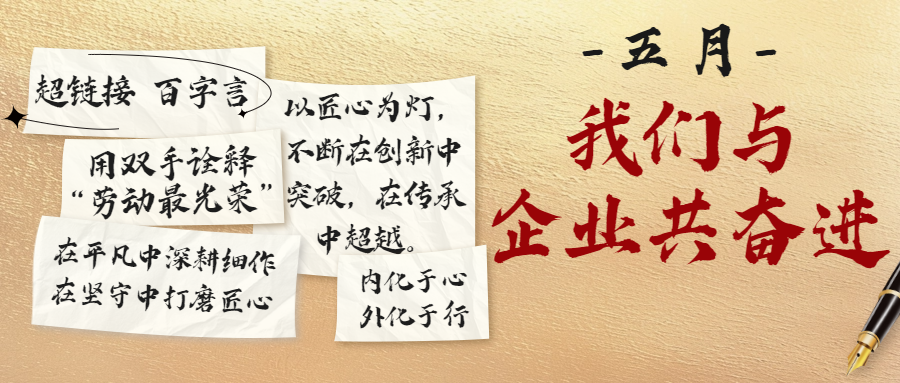 超链接 百字言
用双手诠释
“劳动最光荣”
在平凡中深耕细作
在坚守中打磨匠心
以匠心为灯，
不断在创新中
突破，在传承
中超越。
内化于心
外化于行
-五月-
我们与
企业共奋进